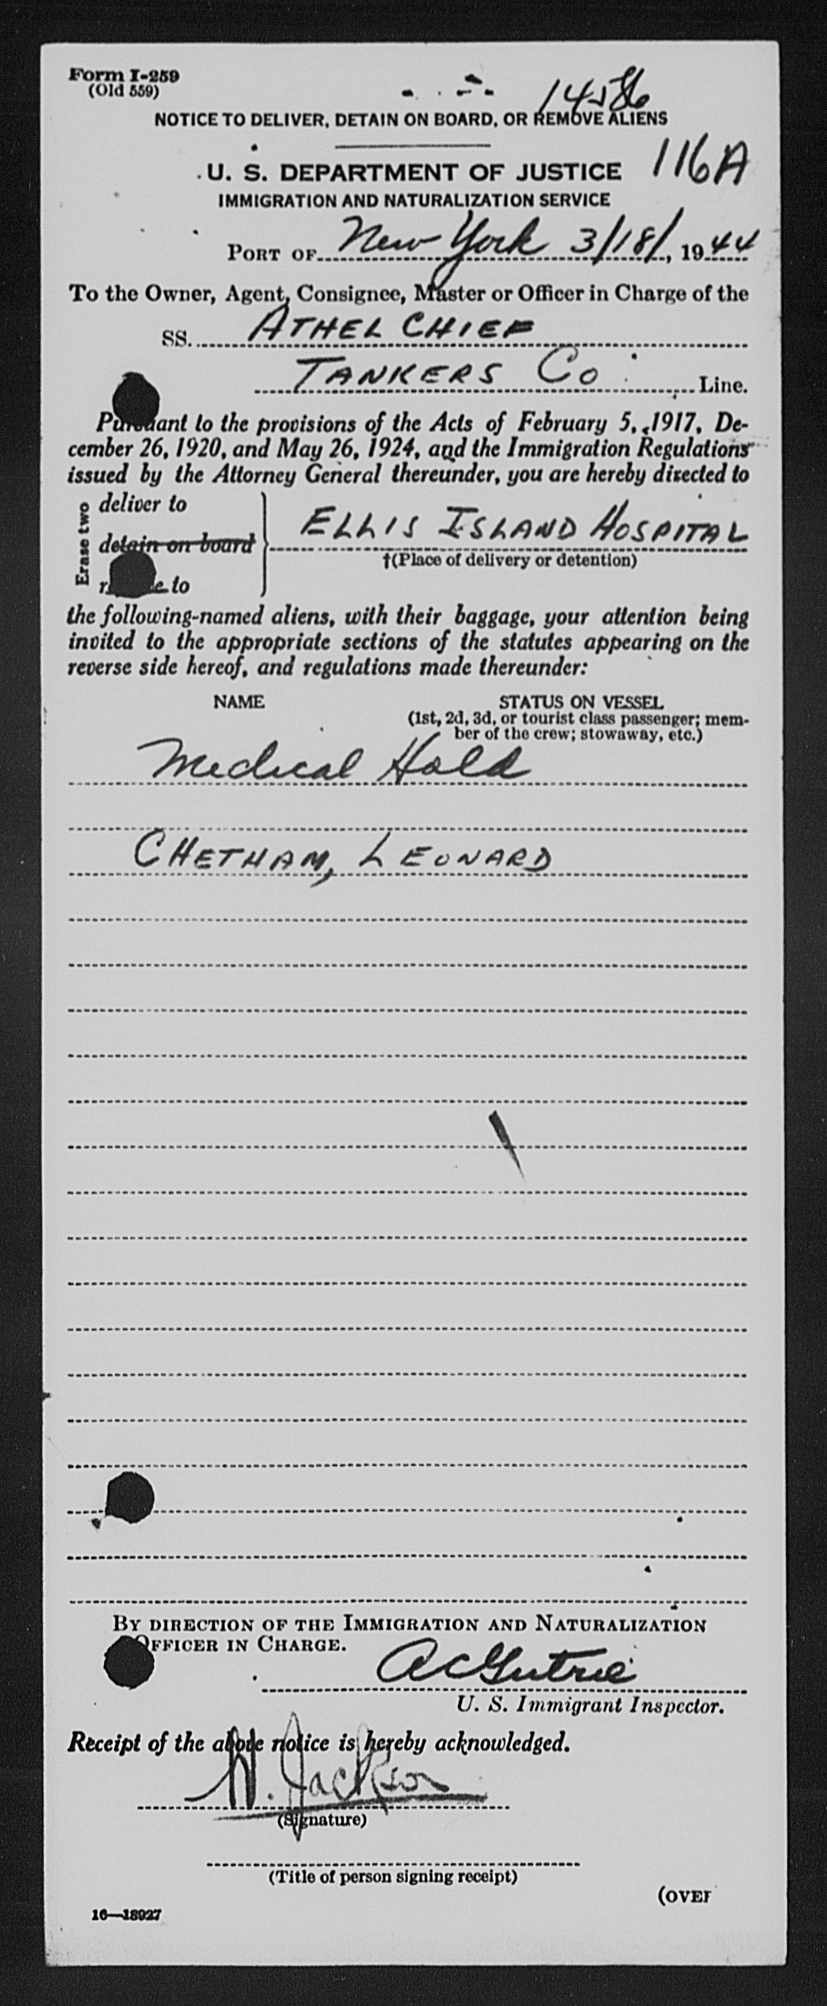 Form I-259
(Old 559)
1456
NOTICE TO DELIVER, DETAIN ON BOARD, OR REMOVE ALIENS
116A
U. S. DEPARTMENT OF JUSTICE
IMMIGRATION AND NATURALIZATION SERVICE
PORT OF New York 3/18/, 1944
To the Owner, Agent, Consignee, Master or Officer in Charge of the
SS. ATHEL CHIEF
TANKERS Co. Line.
Pursuant to the provisions of the Acts of February 5, 1917, De-
cember 26, 1920, and May 26, 1924, and the Immigration Regulations
issued by the Attorney General thereunder, you are hereby directed to
Erase two
deliver to
detain on board
to
ELLIS ISLAND HOSPITAL
†(Place of delivery or detention)
the following-named aliens, with their baggage, your attention being
invited to the appropriate sections of the statutes appearing on the
reverse side hereof, and regulations made thereunder:
NAME STATUS ON VESSEL
(1st, 2d, 3d, or tourist class passenger; mem-
ber of the crew; stowaway, etc.)
Medical Hold
CHETHAM, LEONARD
BY DIRECTION OF THE IMMIGRATION AND NATURALIZATION
OFFICER IN CHARGE.
U. S. Immigrant Inspector.
Receipt of the above notice is hereby acknowledged.
Jackson
(Signature)
(Title of person signing receipt)
(OVER
16—18927